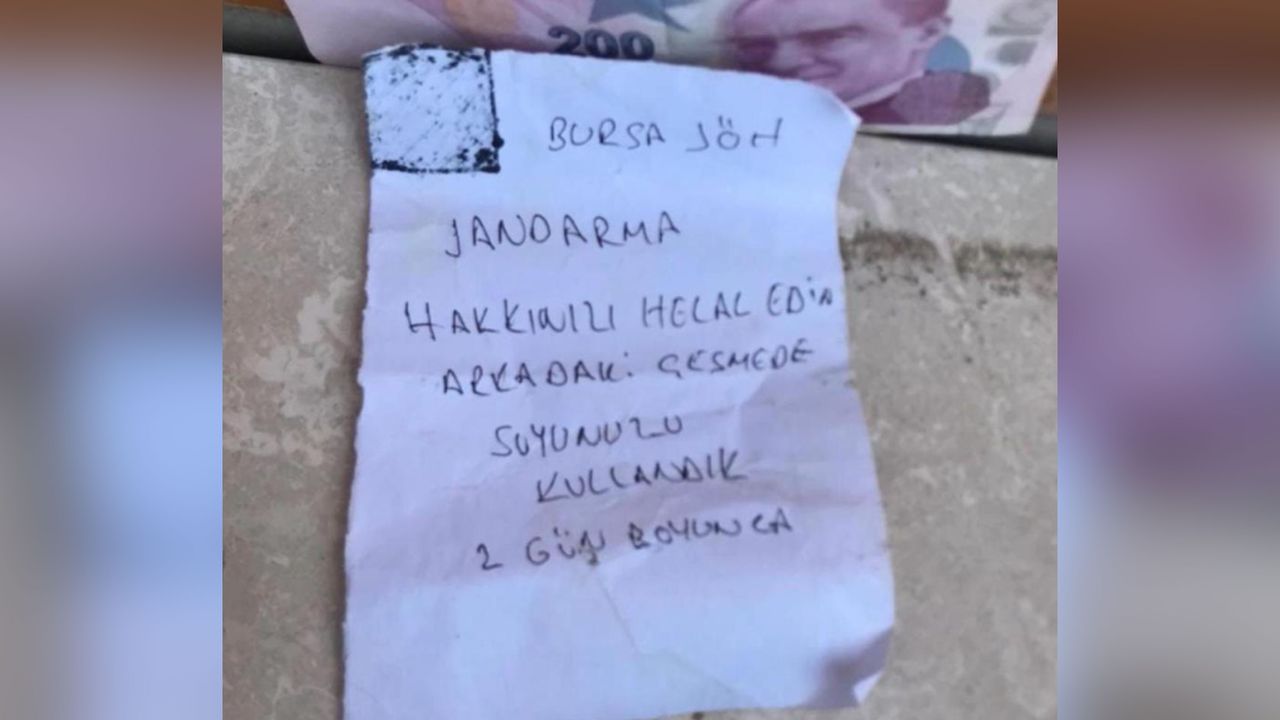 200
BURSA JÖH
JANDARMA
HAKKINIZI HELAL EDİN
ARKADAKİ ÇEŞMEDE
SUYUNUZU
KULLANDIK
2 GÜN BOYUNCA